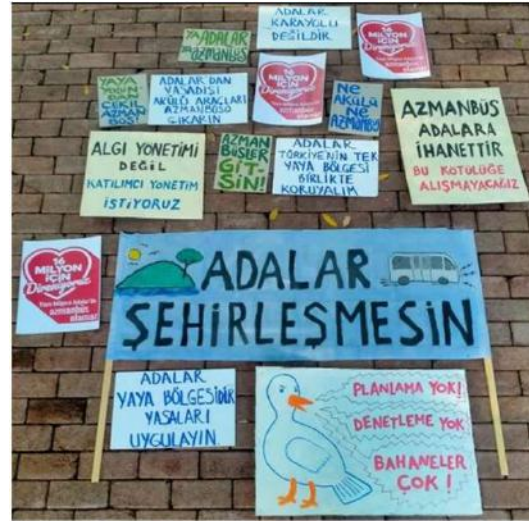 YA ADALAR
YA AZMANBÜS
ADALAR
KARAYOLU
DEĞİLDİR
16
MİLYON
İÇİN
Direniyoruz
YAYA
YOLUN
DAN
ÇEKİL
AZMAN
BÜS!
ADALAR'DAN
YASADIŞI
AKÜLÜ ARAÇLARI
AZMANBÜSÜ
ÇIKARIN
16
MİLYON
İÇİN
Direniyoruz
NE
AKÜLÜ
NE
AZMANBÜS
AZMANBÜS
ADALARA
İHANETTİR
BU KÖTÜLÜĞE
ALIŞMAYACAĞIZ
ALGI YÖNETİMİ
DEĞİL
KATILIMCI YÖNETİM
İSTİYORUZ
AZMAN
BÜSLER
GİT-
SİN!
ADALAR
TÜRKİYENİN TEK
YAYA BÖLGESİ
BİRLİKTE
KORUYALIM
16
MİLYON
İÇİN
Direniyoruz
azmanbüs
olamaz!
ADALAR
ŞEHİRLEŞMESİN
ADALAR
YAYA BÖLGESİDİR
YASALARI
UYGULAYIN
PLANLAMA YOK!
DENETLEME YOK
BAHANELER
ÇOK!